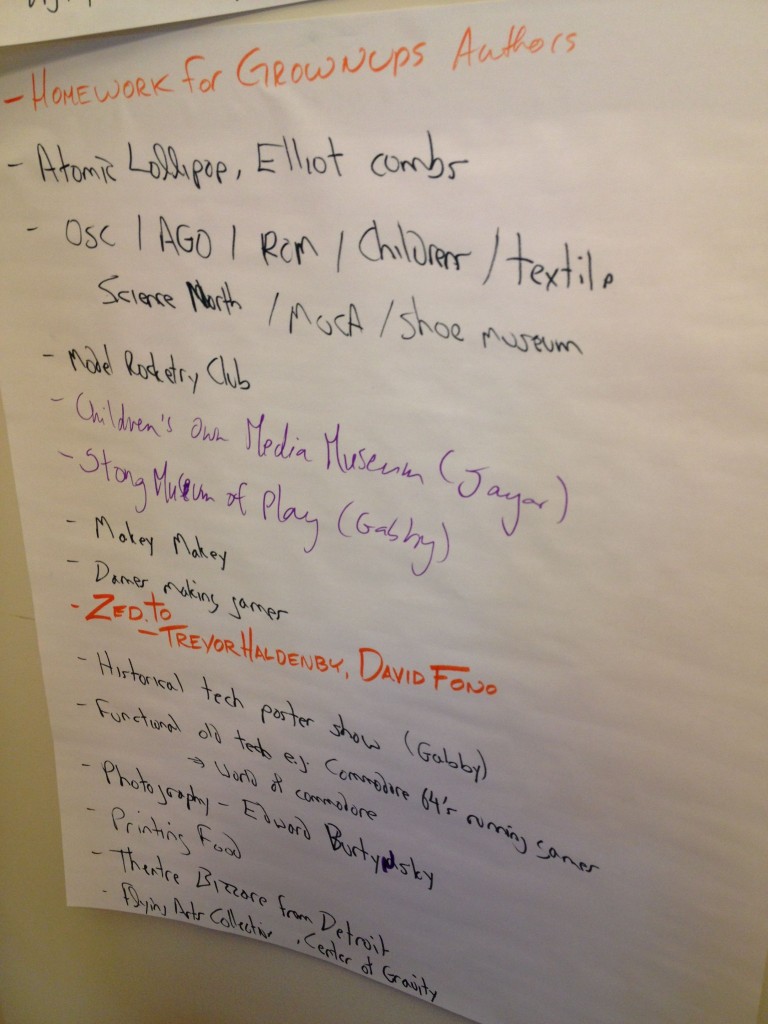 - Homework for Grownups Authors
- Atomic Lollipop, Elliot combs
- OSC / AGO / ROM / Childrens / textile
Science North / MOCA / Shoe museum
- Model Rocketry Club
- Children's Own Media Museum (Jayar)
- Stong Museum of Play (Gabby)
- Makey Makey
- Dames making games
- ZED.TO
- TREVOR HALDENBY, DAVID FONO
- Historical tech poster show (Gabby)
- Functional old tech eg Commodore 64's running games
→ World of commodore
- Photography - Edward Burtynsky
- Printing Food
- Theatre Bizzare from Detroit
- Flying Arts Collective, Center of Gravity